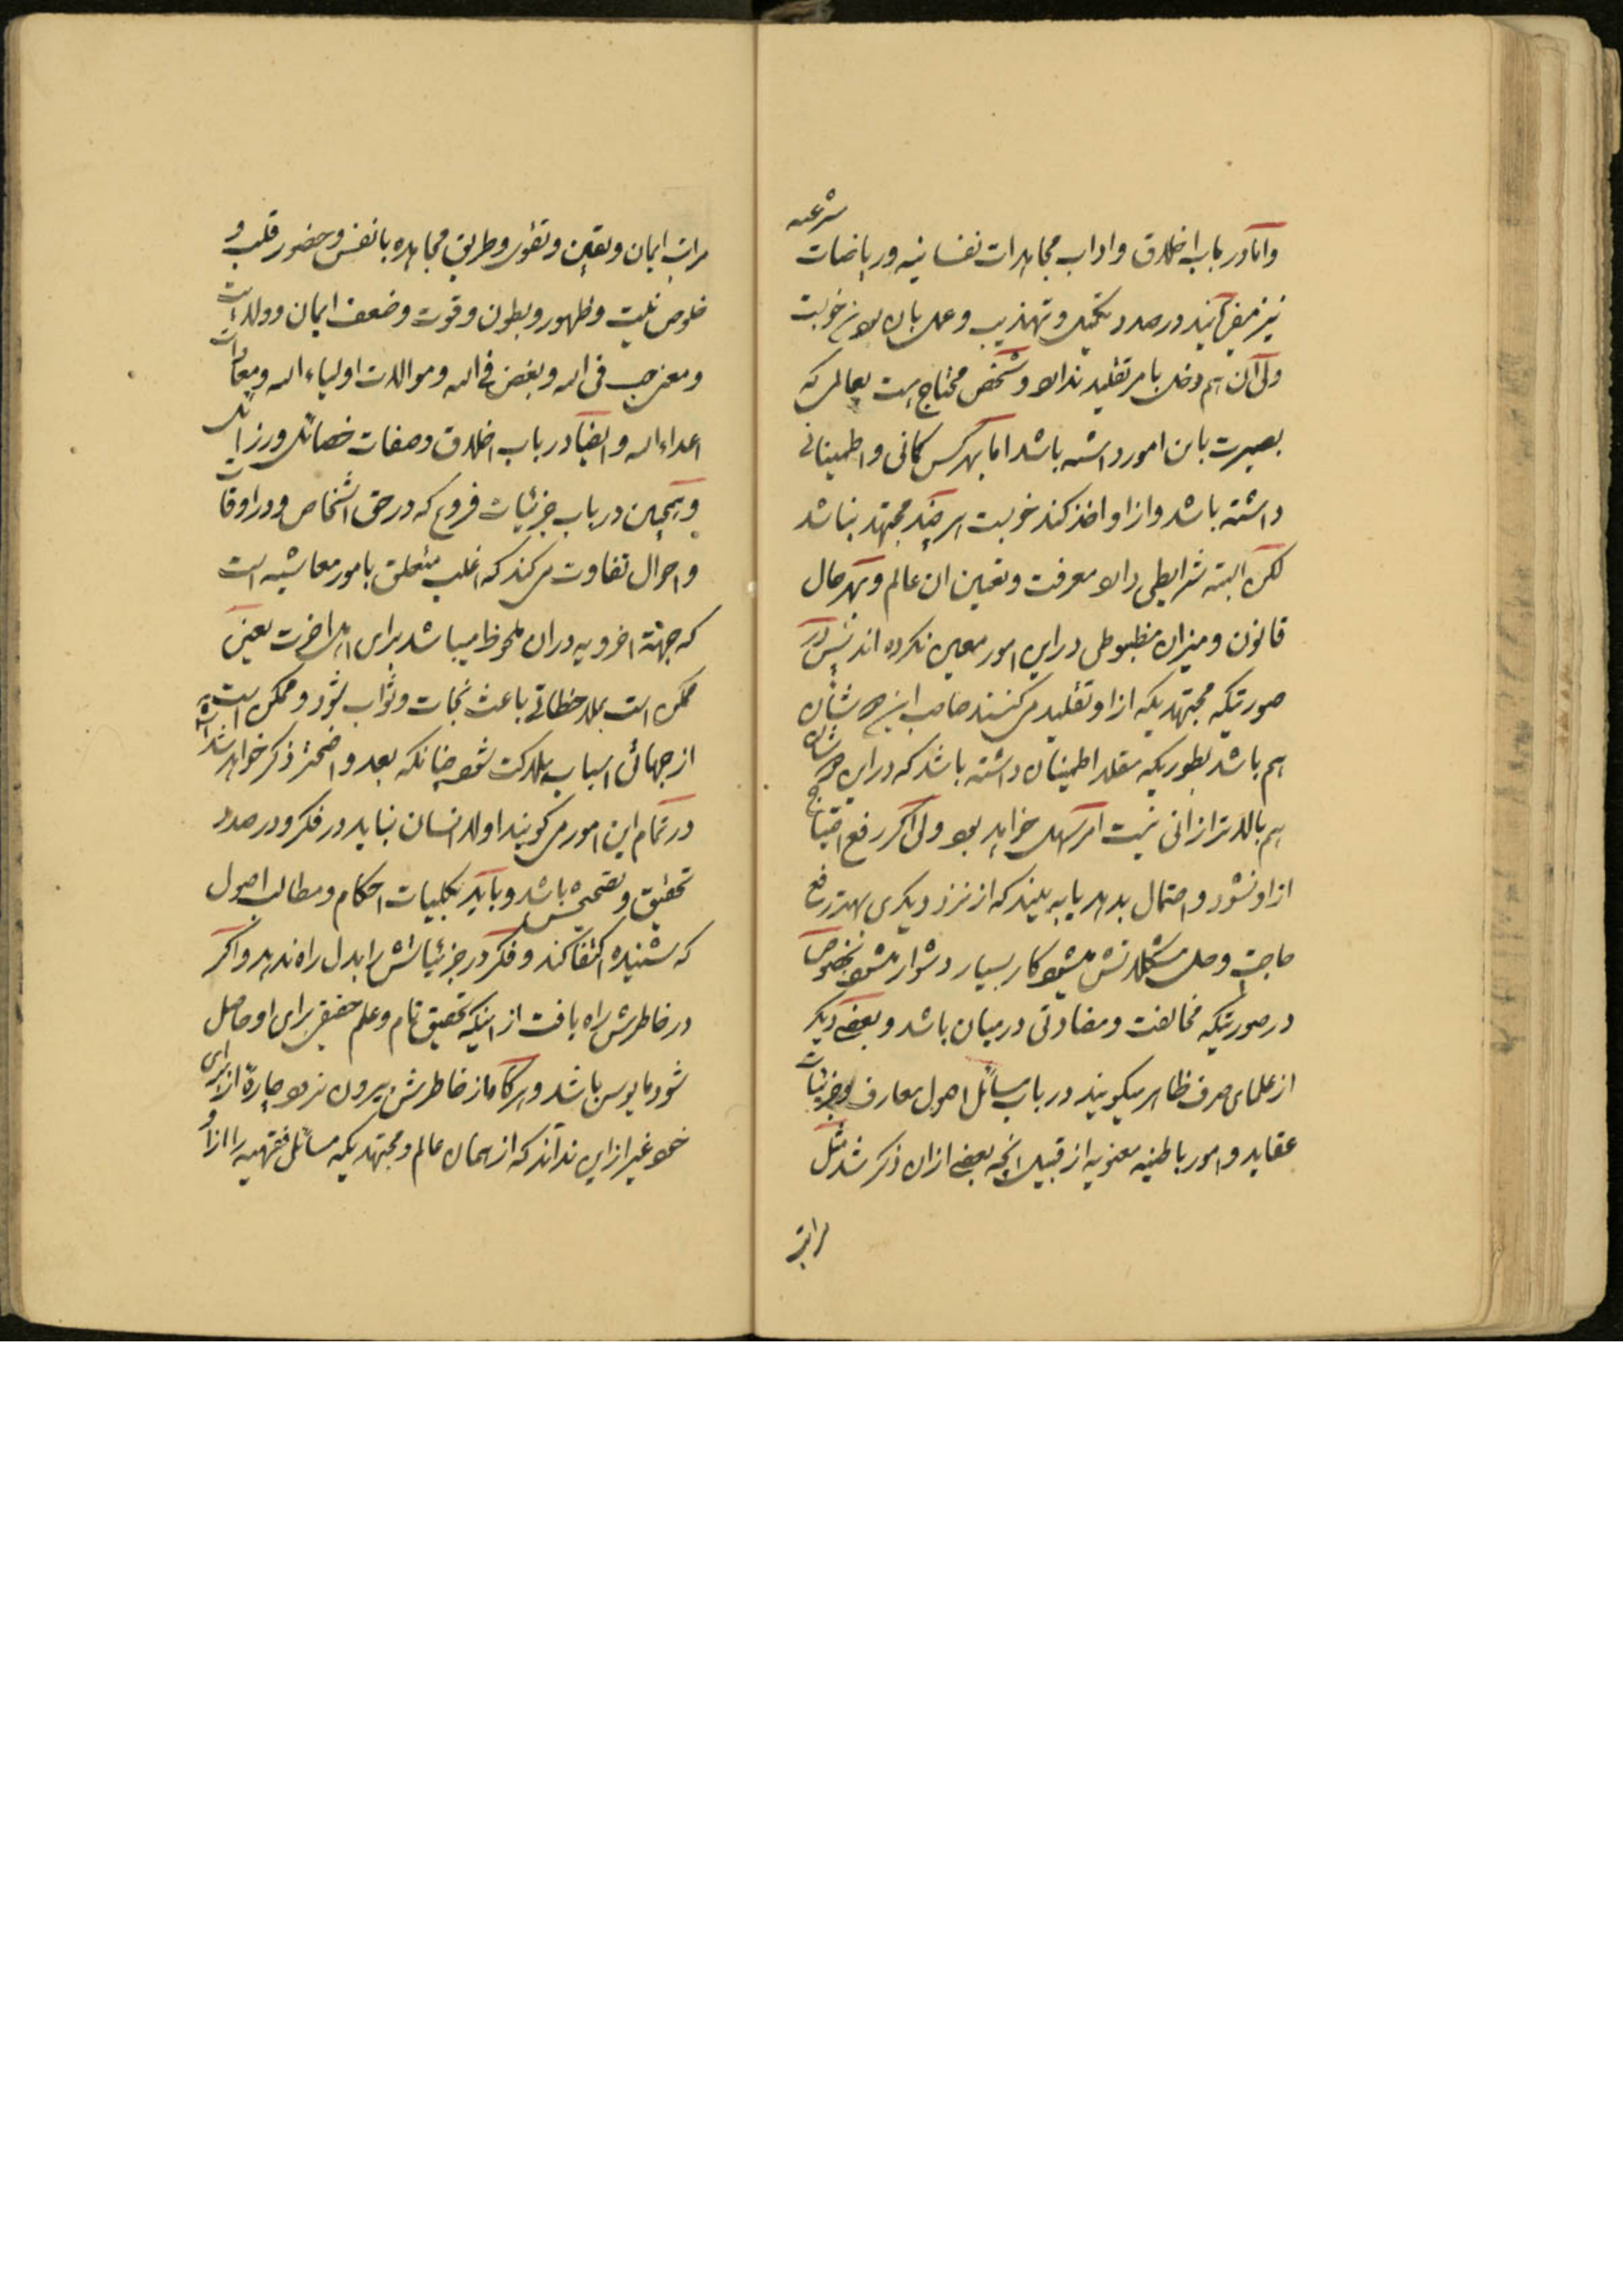 واما در باب اخلاق و اداب مجاهدات نفسانیه و ریاضات شرعیه
نیز میفرمایند در صدد تکمیل و تهذیب و عمل بان بودن خوبست
ولی آن هم دخل بامر تقلید ندارد و شخص محتاج هست بعالمی که
بصیرت باین امور داشته باشد اما بهر کس کمانی و اطمینانی
داشته باشد و از او اخذ کند خوبست هر چند مجتهد نباشد
لکن البته شرایطی دارد معرفت و تعیین ان عالم و بهر حال
قانون و میزان مضبوطی در این امور معین نکرده اند پس در
صورتیکه مجتهدیکه از او تقلید میکنند صاحب این شان
هم باشد بطوریکه مقلد اطمینان داشته باشد که در این شان
هم بالاتر ازانی نیست امر سهل خواهد بود ولی اکر رفع احتیاج
از او نشود و احتمال بدهد یا به بیند که از نزد دیکری بهتر رفع
حاجت و حل مشکلاتش میشود کار بسیار دشوار میشود بخصوص
در صورتیکه مخالفت و مضادتی در میان باشد و بعضی دیکر
از علمای صرف ظاهر میکویند در باب مسائل اصول معارف و جزئیات
عقاید و امور باطنیه معنویه از قبیل انچه بعضی ازان ذکر شد مثل
مراتب
مراتب ایمان و یقین و تقوی و طریق مجاهده با نفس و حضور قلب و
خلوص نیت و ظهور و بطون و قوت و ضعف ایمان و ولایت
و معنی حب فی الله و بغض فی الله و موالات اولیاء الله و معادات
اعداء الله و ایضا در باب اخلاق و صفات خصائل و رزائل
و همچنین در باب جزئیات فروع که در حق اشخاص و در اوقات
و احوال تفاوت میکند که اغلب متعلق بامور معاشیه است
که جهته اخرویه دران ملحوظ میباشد برای اهل اخرت یعنی
ممکن است بملاحظاتی باعث نجات و ثواب شود و ممکن است
از جهاتی اسباب هلاکت شود چنانکه بعد واضحتر ذکر خواهد شد انشاء الله
در تمام این امور می کویند اولا انسان نباید در فکر و در صدد
تحقیق و تصحیحش باشد و باید بکلیات احکام و مطالب اصول
که شنیده اکتفا کند و فکر در جزئیاتش را بدل راه ندهد و اکر
در خاطرش راه یافت از اینکه تحقیق تام و علم حقیقی برای او حاصل
شود مایوس باشد و هرکاه از خاطرش بیرون نرود چارهٔ از برای
خود غیر از این نداند که از همان عالم و مجتهدیکه مسائل فقهیه را از او